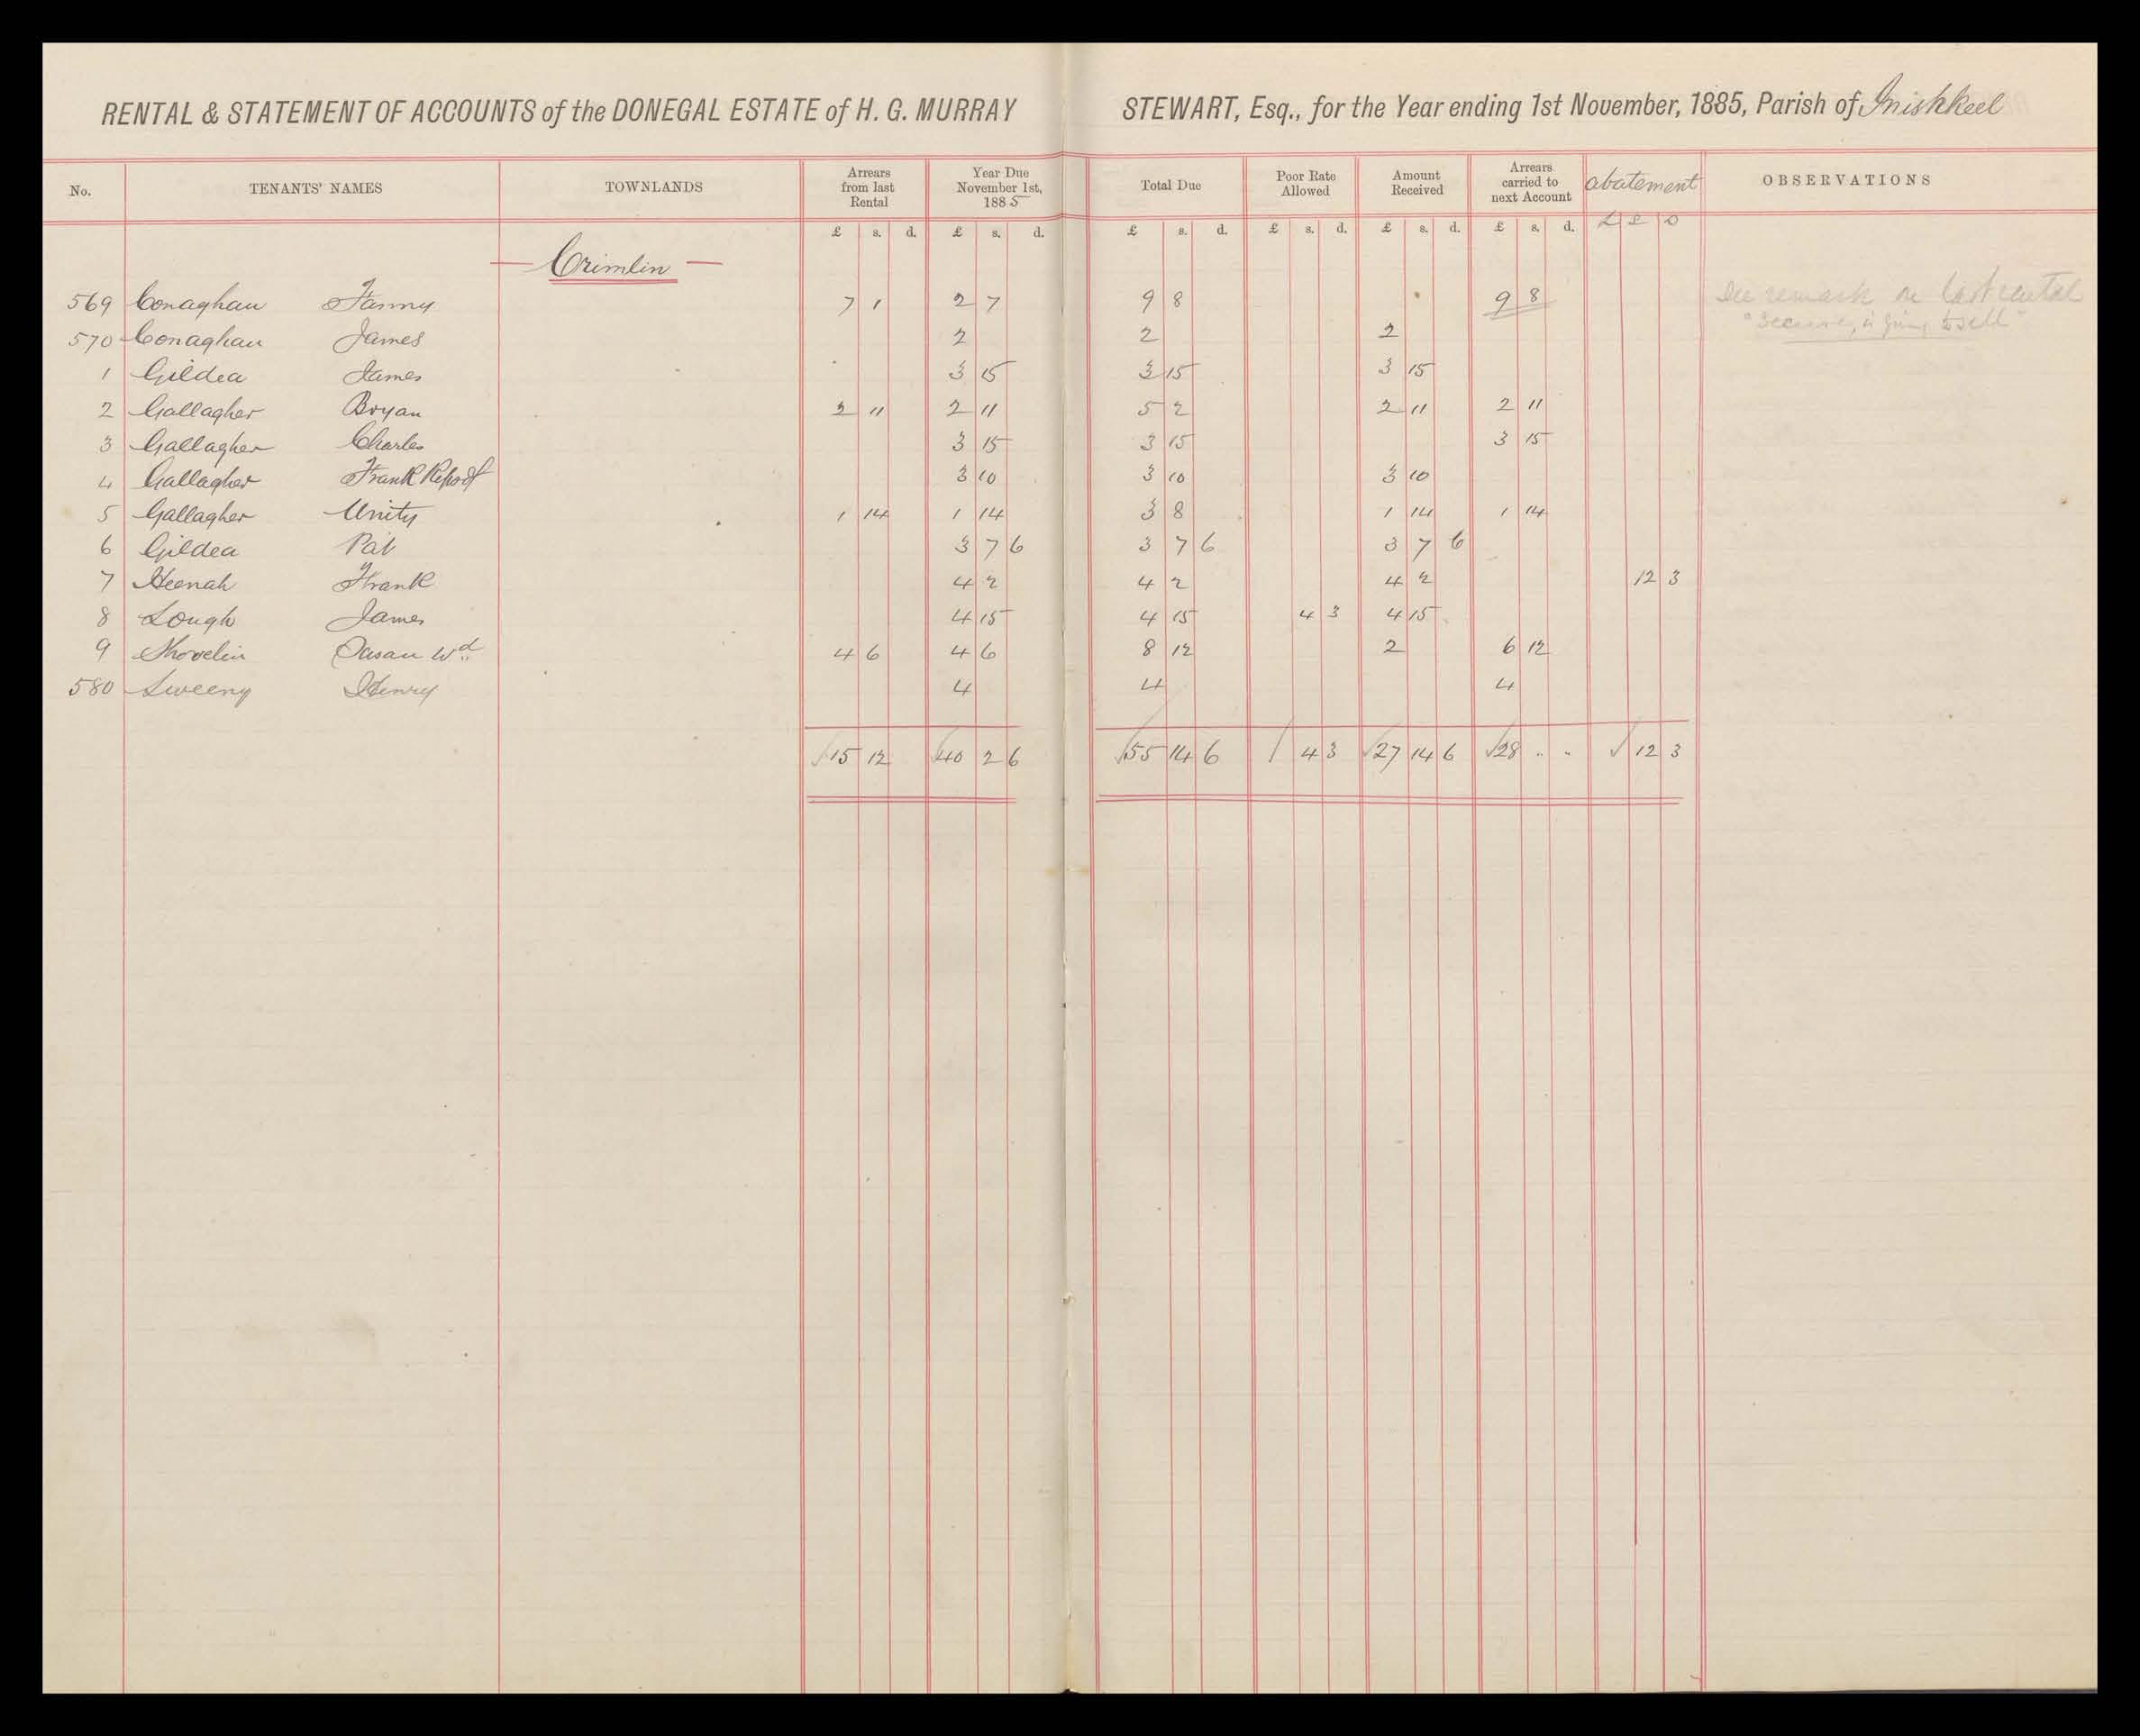 RENTAL & STATEMENT OF ACCOUNTS of the DONEGAL ESTATE of H. G. MURRAY STEWART, Esq., for the Year ending 1st November, 1885, Parish of Inishkeel
No. TENANTS' NAMES TOWNLANDS Arrears from last Rental Year Due November 1st, 1885 Total Due Poor Rate Allowed Amount Received Arrears carried to next Account abatement OBSERVATIONS
£ s. d. £ s. d. £ s. d. £ s. d. £ s. d. £ s. d. £ S D
— Crimlin —
569 Conaghan Fanny 7 1 2 7 9 8 9 8 See remark on last rental
570 Conaghan James 2 2 2 "secure, is going to sell"
1 Gildea James 3 15 3 15 3 15
2 Gallagher Bryan 2 11 2 11 5 2 2 11 2 11
3 Gallagher Charles 3 15 3 15 3 15
4 Gallagher Frank 3 10 3 10 3 10
5 Gallagher Unity 1 14 1 14 3 8 1 14 1 14
6 Gildea Pat 3 7 6 3 7 6 3 7 6
7 Heenah Frank 4 2 4 2 4 2 12 3
8 Lough James 4 15 4 15 4 3 4 15
9 Shovelin Wd 4 6 4 6 8 12 2 6 12
580 Sweeny Henry 4 4 4
15 12 40 2 6 55 14 6 4 3 27 14 6 28 .. .. 12 3